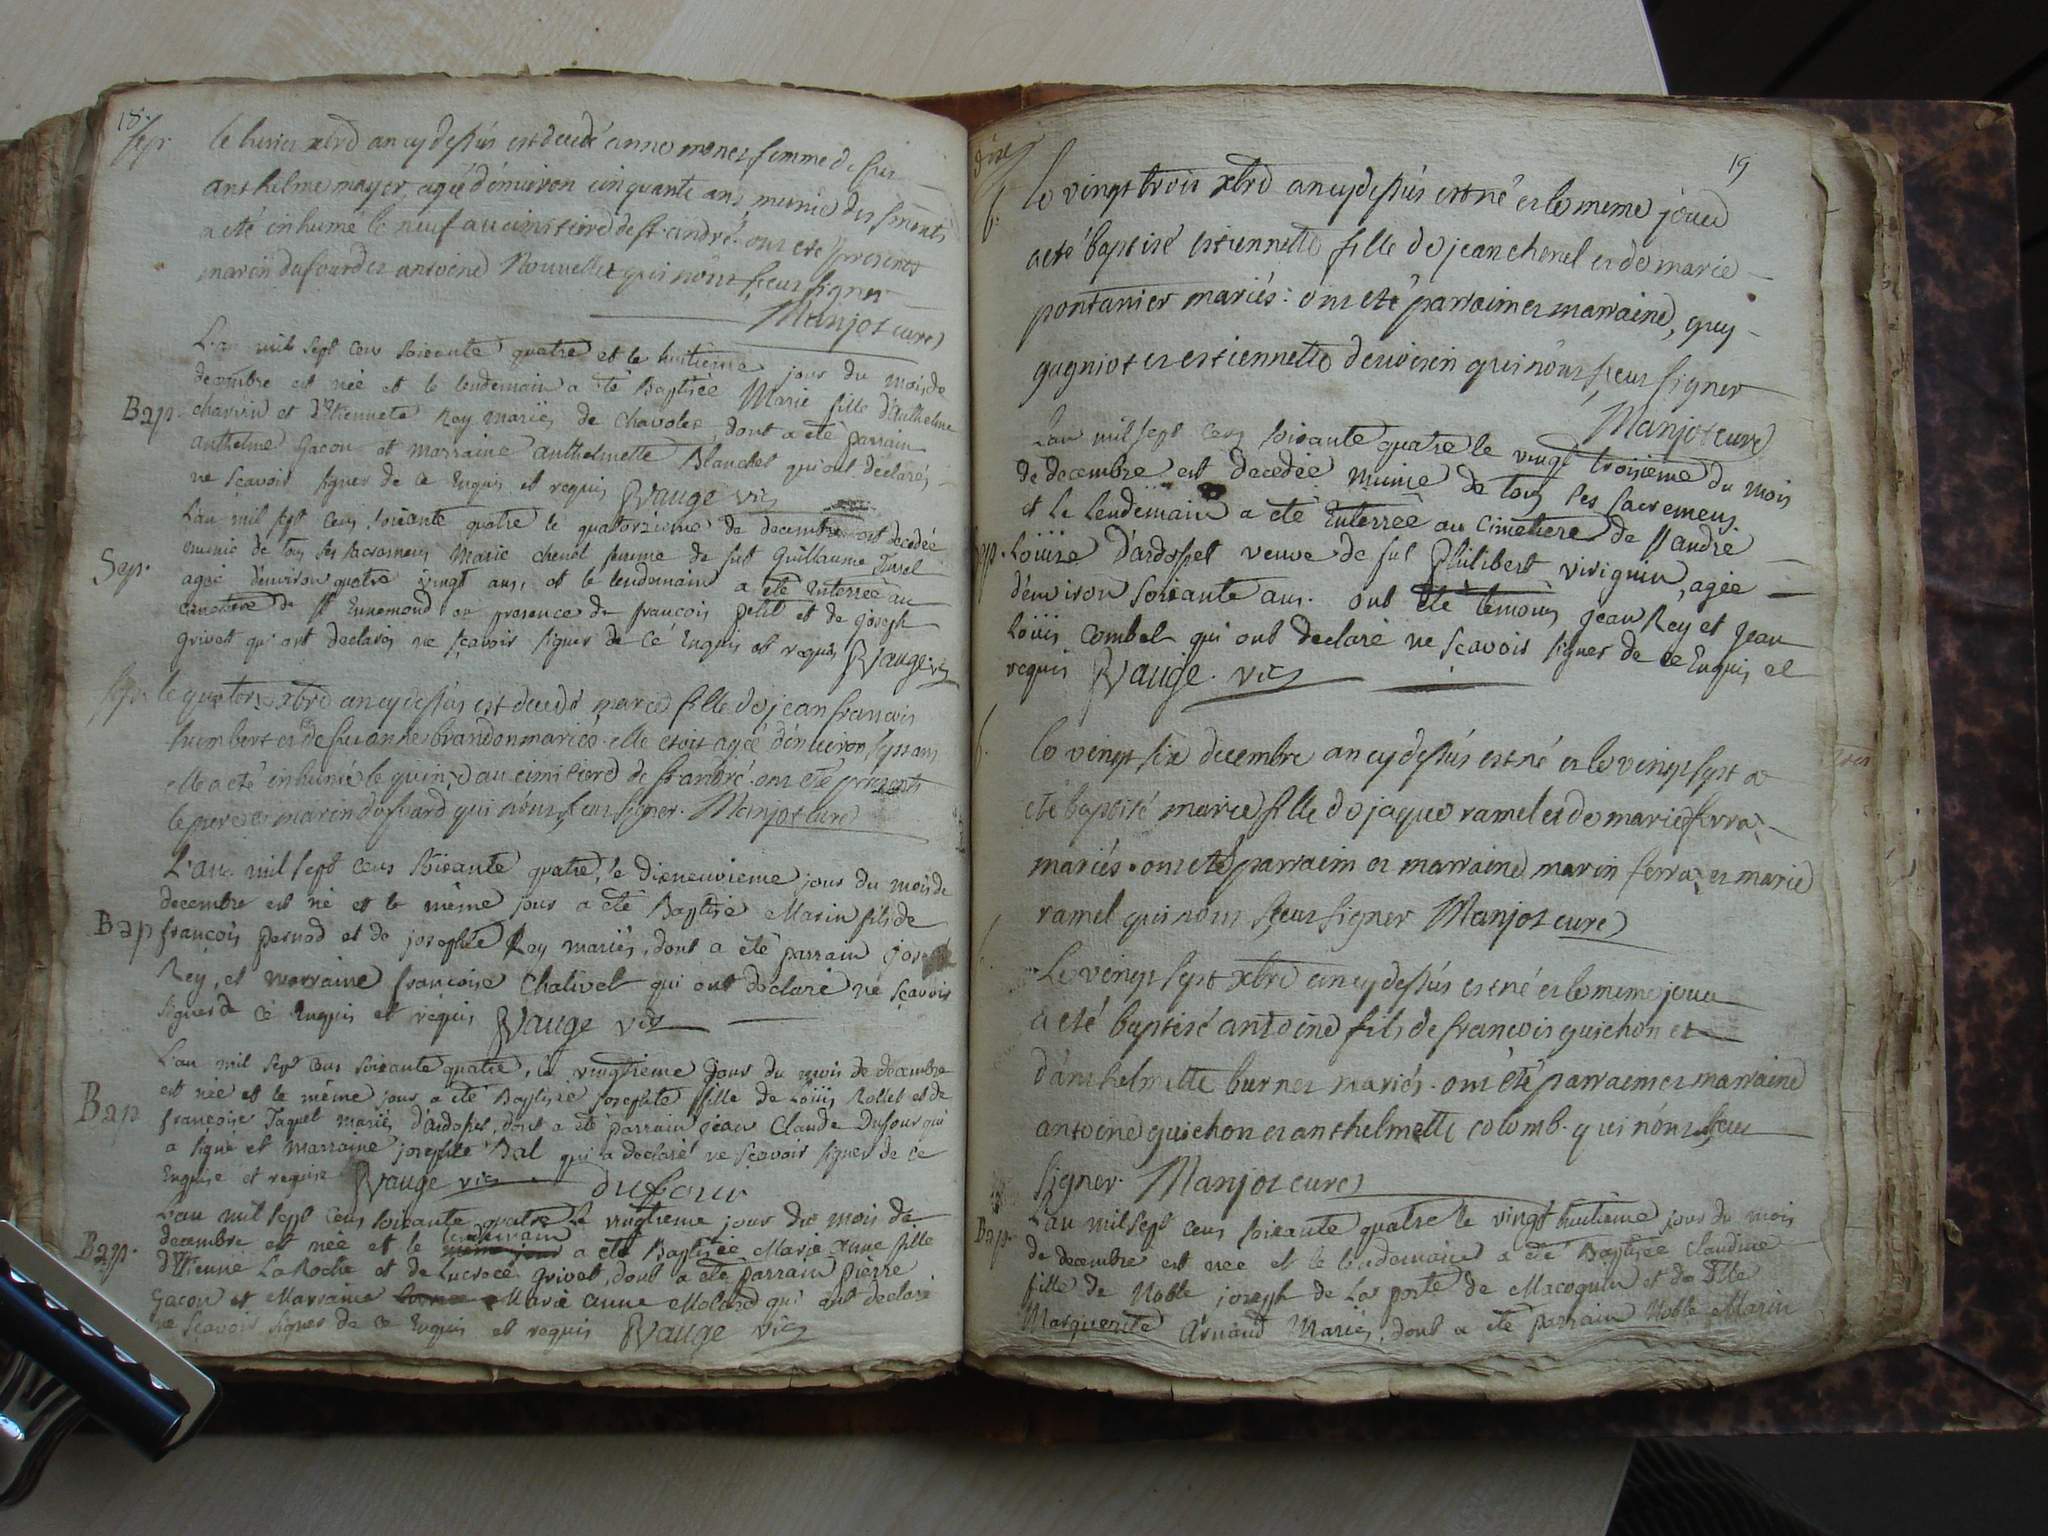 18.
Sep. le huict xbre an cy dessus est decedé anne monet femme de feu
anthelme mayet agée d'énuiron cinquante ans munie des sments
a eté inhumé le neuf au cimitiere de st. andré. ont eté presents
marin dufourd et antoine Nouvellet qui nônt sceu signer
Manjot curé
L'an mil sept cens soixante quatre et le huitieme jour du mois de
decembre est née et le lendemain a eté Baptisée Marie fille d'Anthelme
Bap. charvin et d'Etiennete Rey mariés de Chavoley dont a eté parrain
anthelme Gacon et marraine Anthelmette Blanchet qui ont déclarés
ne sçavoir signer de ce Enquis et requis Vauge vic
L'an mil sept cens soixante quatre le quatorzieme de decembre est decedée
munie de tous ses sacremens Marie chenel femme de fut Guillaume Jussel
Sep. agée d'environ quatre vingt ans, et le lendemain a eté Enterrée au
cimetiere de st Ennemond en presence de françois petit et de joseph
grivet qui ont declarés ne sçavoir signer de ce Enquis et requis Vauge vic
Sep. le quatorze xbre an cy dessus est decedé marie fille de jean francois
humbert et de feu anne brandon mariés. elle etoit agée d'énuiron sept ans
elle a eté inhumé le quinze au cimitiere de st andré. ont eté presents
le pere et marin dufourd qui nônt sceu signer. Manjot curé
L'an mil sept cens soixante quatre, le dixneuvieme jour du mois de
decembre est né et le même jour a eté Baptisé Marin fils de
Bap françois pernod et de josephte Rey mariés, dont a eté parrain joseph
Rey, et marraine françoise Chalivet qui ont declaré ne sçavoir
signer de ce Enquis et requis Vauge vic
L'an mil sept cens soixante quatre, le vingtieme jour du mois de decembre
est née et le même jour a eté Baptisée josephte fille de Loüis Rollet et de
Bap françoise Jaquet mariés d'ardosset, dont a eté parrain jean Claude Dufour qui
a signé et marraine josephte Bal qui a declaré ne sçavoir signer de ce
Enquise et requise Vauge vic dufour
L'an mil sept cens soixante quatre le vingtieme jour du mois de
lendemain
Bap. decembre est née et le même jour a eté Baptisée Marie Anne fille
d'Etienne La Roche et de Lucrece grivet, dont a eté parrain pierre
Gacon et Marraine Marie anne Molard qui ont declaré
ne sçavoir signer de ce Enquis et requis Vauge vic
19
b. le vingt trois xbre an cy dessus est né et le meme jour
a eté baptisé estiennette fille de jean chenel et de marie
pontanier mariés: ont eté parrain et marraine, guy
gagniot et estiennette deuoisin qui nônt sceu signer
Manjot curé
L'an mil sept cens soixante quatre le vingt troisieme du mois
de decembre est decedée munie de tous ses sacremens.
et le lendemain a eté Enterrée au cimetiere de st andré
Sep. Loüise d'ardosset veuve de fut Philibert virignin, agée
d'environ soixante ans. ont été temoins jean Rey et jean
Loüis Combet qui ont declaré ne sçavoir signer de ce Enquis et
requis Vauge. vic
b. le vingt six decembre an cy dessus est né et le vingt sept a
eté baptisé marie fille de jaque ramel et de marie ferra
mariés. ont eté parraim et marraine marin ferra et marie
ramel qui nônt sceu signer Manjot curé
Le vingt sept xbre an cy dessus est né et le meme jour
a eté baptisé antoine fils de francois guichon et
d'anthelmette burnet mariés. ont eté parraim et marraine
antoine guichon et anthelmette colomb. qui nônt sceu
signer. Manjot curé
Bap. L'an mil sept cens soixante quatre le vingt huitieme jour du mois
de decembre est née et le lendemain a eté Baptisée Claudine
fille de Noble joseph de La porte de Macognin et de Dlle
Marguerite Arnaud Mariés, dont a eté parrain Noble Marin